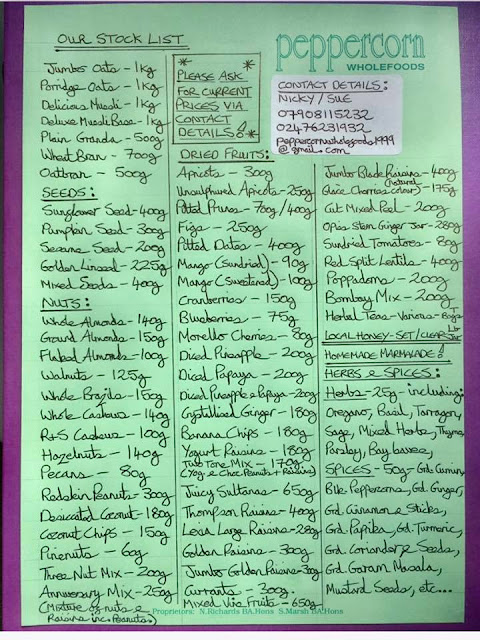 OUR STOCK LIST
Jumbo Oats - 1kg
Porridge Oats - 1kg
Delicious Muesli - 1kg
Deluxe Muesli Base - 1kg
Plain Granola - 500g
Wheat Bran - 700g
Oatbran - 500g
SEEDS:
Sunflower Seed - 400g
Pumpkin Seed - 300g
Sesame Seed - 200g
Golden Linseed - 225g
Mixed Seeds - 400g
NUTS:
Whole Almonds - 140g
Ground Almonds - 150g
Flaked Almonds - 100g
Walnuts - 125g
Whole Brazils - 150g
Whole Cashews - 140g
R+S Cashews - 100g
Hazelnuts - 140g
Pecans - 80g
Redskin Peanuts - 300g
Desiccated Coconut - 180g
Coconut Chips - 150g
Pinenuts - 60g
Three Nut Mix - 200g
Anniversary Mix - 250g
(Mixture of nuts &
Raisins inc. Peanuts.)
PLEASE ASK
FOR CURRENT
PRICES VIA
CONTACT
DETAILS!
DRIED FRUITS:
Apricots - 300g
Unsulphured Apricots - 250g
Pitted Prunes - 700g/400g
Figs - 250g
Pitted Dates - 400g
Mango (Sundried) - 90g
Mango (Sweetened) - 100g
Cranberries - 150g
Blueberries - 75g
Morello Cherries - 80g
Diced Pineapple - 200g
Diced Papaya - 200g
Diced Pineapple & Papaya - 200g
Crystallised Ginger - 180g
Banana Chips - 180g
Yogurt Raisins - 180g
Two Tone Mix - 170g
(Yog & Choc Peanuts + Raisins)
Juicy Sultanas - 650g
Thompson Raisins - 400g
Lexia Large Raisins - 280g
Golden Raisins - 300g
Jumbo Golden Raisins - 300g
Currants - 300g
Mixed Vine Fruits - 650g
peppercorn
WHOLEFOODS
CONTACT DETAILS:
NICKY / SUE
07908115232
02476231932
peppercornwholefoods1999
@gmail.com
Jumbo Black Raisins - 400g
Glacé Cherries (natural colour) - 175g
Cut Mixed Peel - 200g
Opies Stem Ginger Jar - 280g
Sundried Tomatoes - 80g
Red Split Lentils - 400g
Poppadoms - 200g
Bombay Mix - 200g
Herbal Teas - Various - Bags
LOCAL HONEY - SET/CLEAR 1lb Jar
HOMEMADE MARMALADE!
HERBS & SPICES:
Herbs - 25g - including:
Oregano, Basil, Tarragon,
Sage, Mixed Herbs, Thyme,
Parsley, Bay leaves,
SPICES - 50g - Gd. Cumin,
Blk. Peppercorns, Gd. Ginger,
Grd. Cinnamon & Sticks,
Grd. Paprika, Grd. Turmeric,
Grd. Coriander & Seeds,
Grd. Garam Masala,
Mustard Seeds, etc...
Proprietors: N. Richards BA.Hons S. Marsh BA.Hons